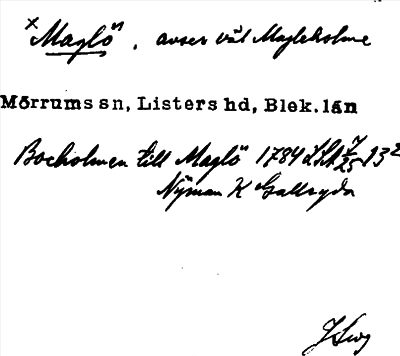 × "Maglö", avser väl Magleholme
Mörrums sn, Listers hd, Blek. län
Bocholmen till Maglö 1784 LSA 7/25 13²
Nyman K Gallsyda